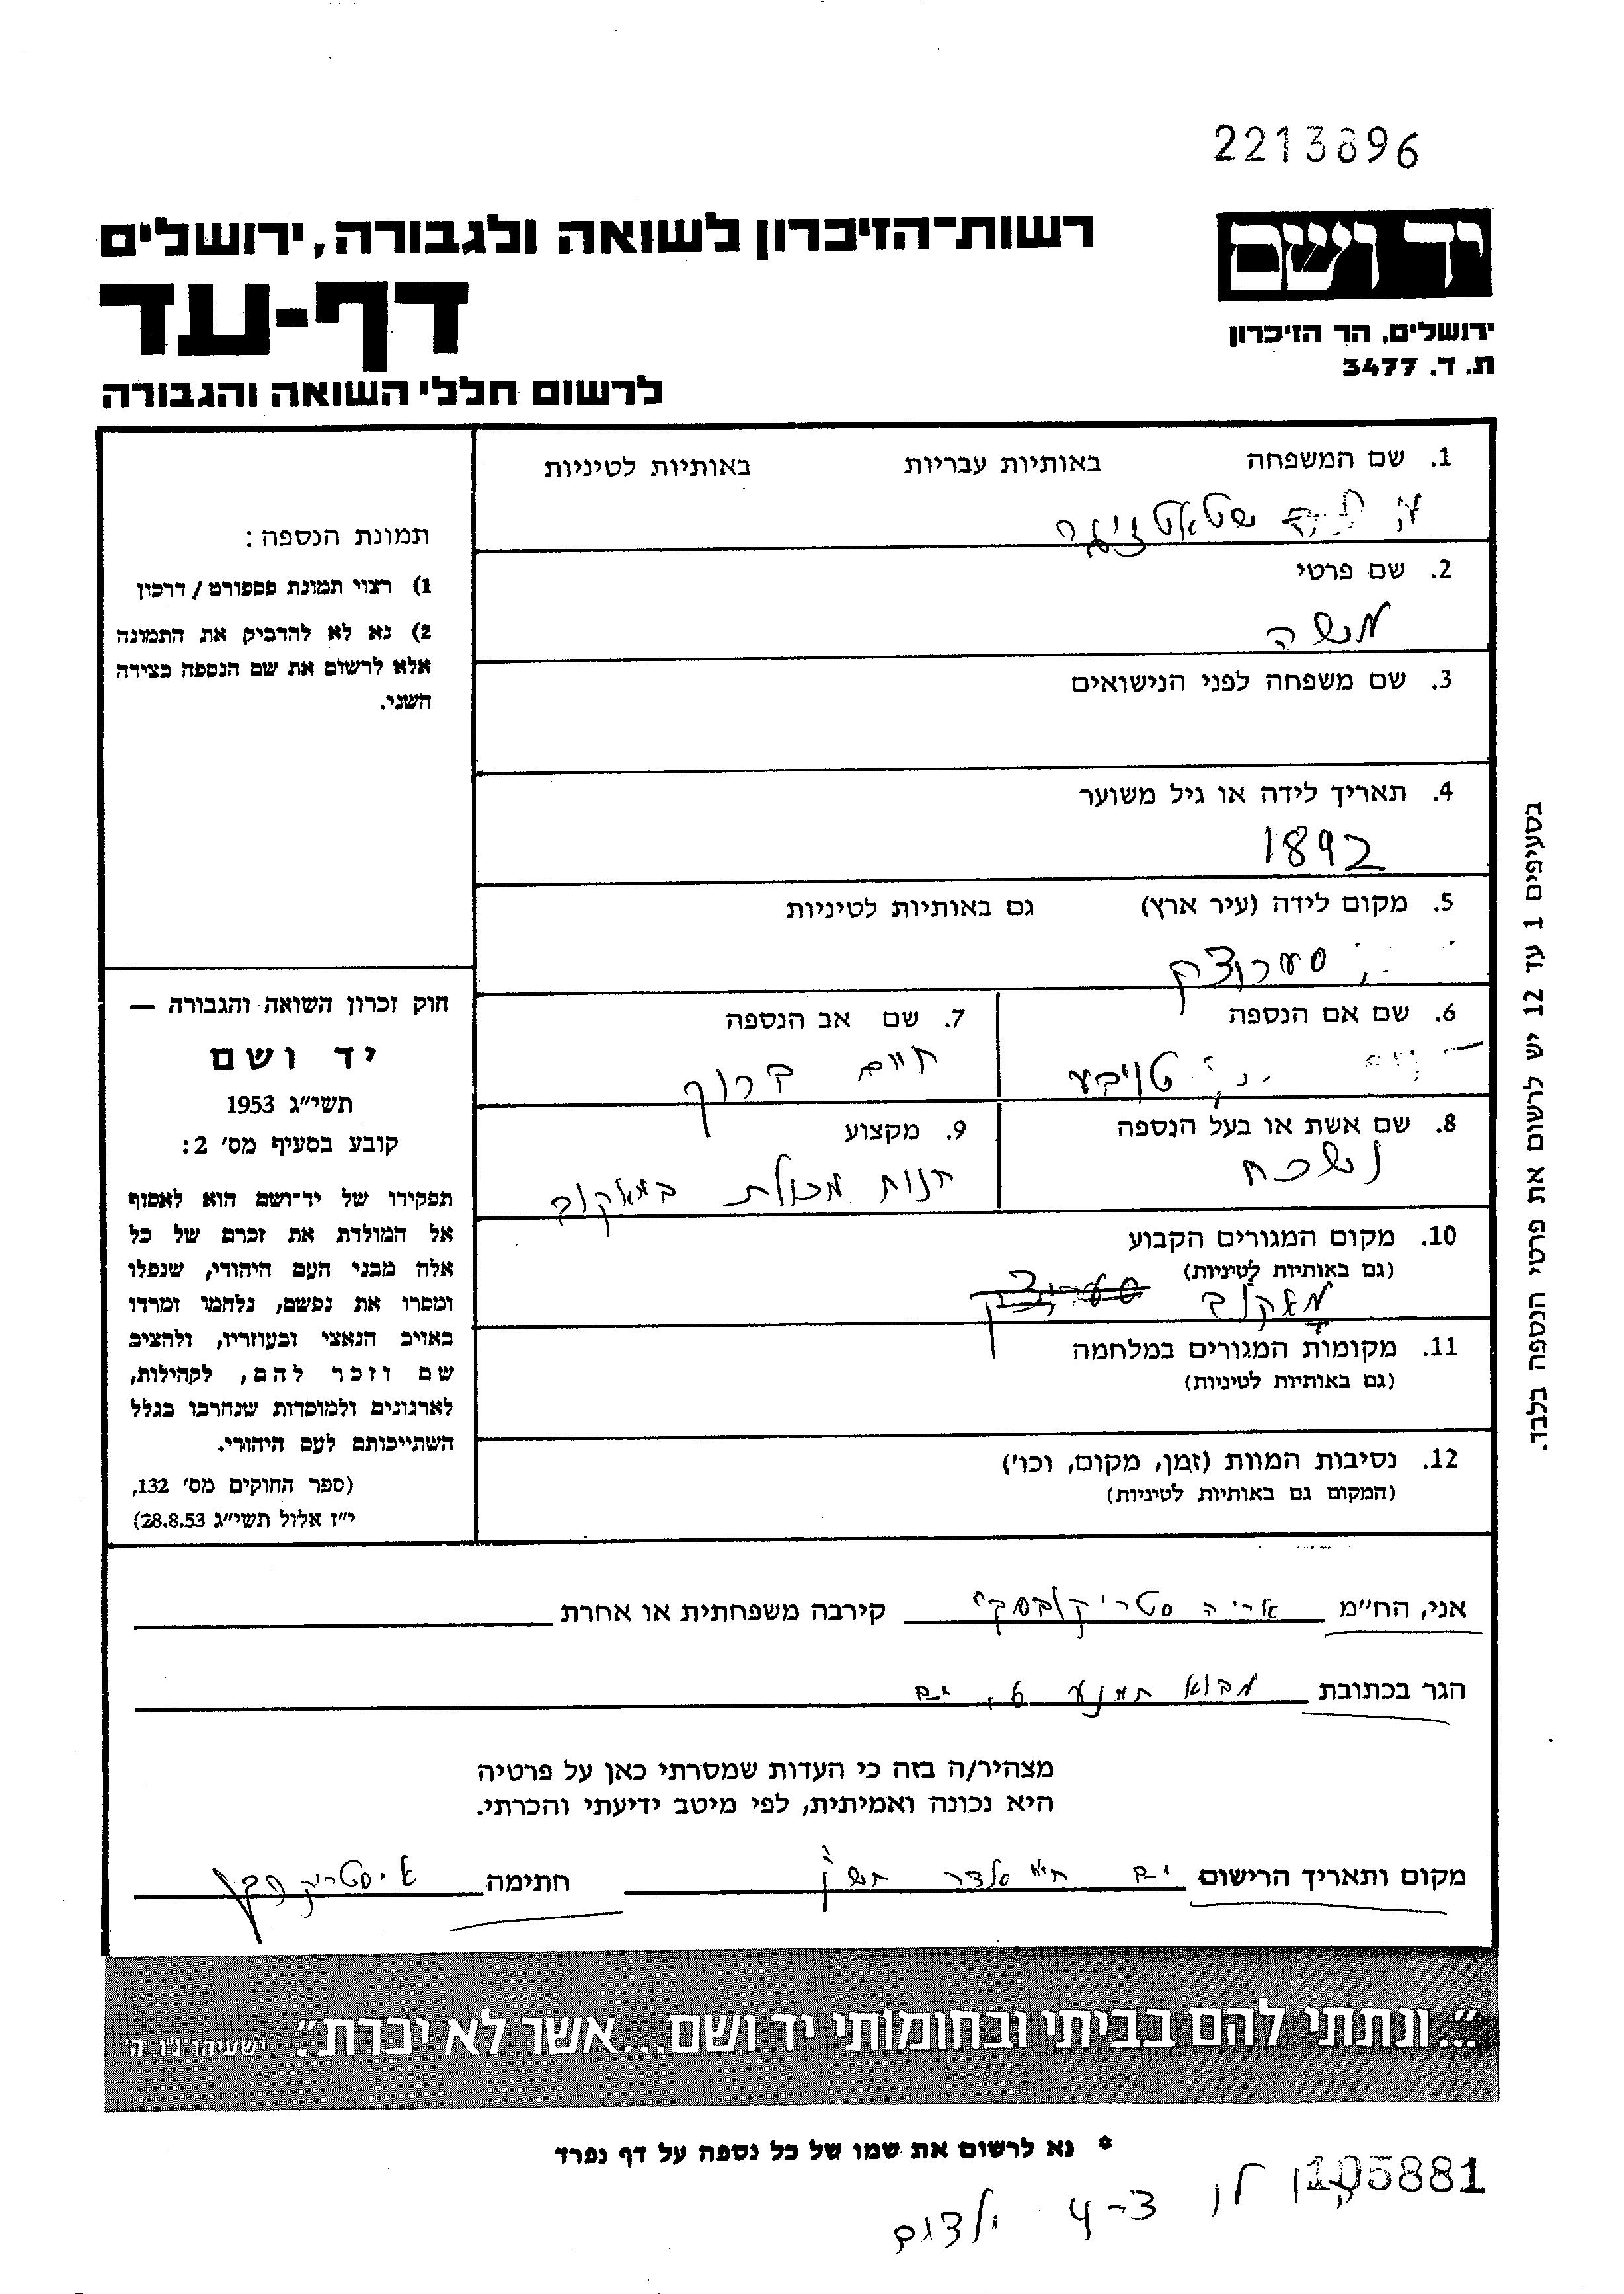 2213896
רשות־הזיכרון לשואה ולגבורה, ירושלים
יד ושם
דף-עד
ירושלים, הר הזיכרון
ת. ד. 3477
לרשום חללי השואה והגבורה
1. שם המשפחה באותיות עבריות באותיות לטיניות
2. שם פרטי
משה
3. שם משפחה לפני הנישואים
4. תאריך לידה או גיל משוער
1892
5. מקום לידה (עיר ארץ) גם באותיות לטיניות
סערוצק
6. שם אם הנספה
טויבע
7. שם אב הנספה
חיים ברוך
8. שם אשת או בעל הנספה
9. מקצוע
חנות מכולת במאקוב
10. מקום המגורים הקבוע
(גם באותיות לטיניות)
מאקוב
11. מקומות המגורים במלחמה
(גם באותיות לטיניות)
12. נסיבות המוות (זמן, מקום, וכו')
(המקום גם באותיות לטיניות)
תמונת הנספה:
1) רצוי תמונת פספורט / דרכון
2) נא לא להדביק את התמונה
אלא לרשום את שם הנספה בצידה
השני.
חוק זכרון השואה והגבורה —
יד ושם
תשי"ג 1953
קובע בסעיף מס' 2:
תפקידו של יד־ושם הוא לאסוף
אל המולדת את זכרם של כל
אלה מבני העם היהודי, שנפלו
ומסרו את נפשם, נלחמו ומרדו
באויב הנאצי ובעוזריו, ולהציב
שם וזכר להם, לקהילות,
לארגונים ולמוסדות שנחרבו בגלל
השתייכותם לעם היהודי.
(ספר החוקים מס' 132,
י"ז אלול תשי"ג 28.8.53)
בסעיפים 1 עד 12 יש לרשום את פרטי הנספה בלבד.
אני, הח"מ אריה סטריקובסקי קירבה משפחתית או אחרת
הגר בכתובת מבוא תמנע 6, ים
מצהיר/ה בזה כי העדות שמסרתי כאן על פרטיה
היא נכונה ואמיתית, לפי מיטב ידיעתי והכרתי.
מקום ותאריך הרישום ים חתימה
"...ונתתי להם בביתי ובחומותי יד ושם...אשר לא יכרת". ישעיהו נ"ו, ה'
* נא לרשום את שמו של כל נספה על דף נפרד
105881
לו 3-4 ילדים